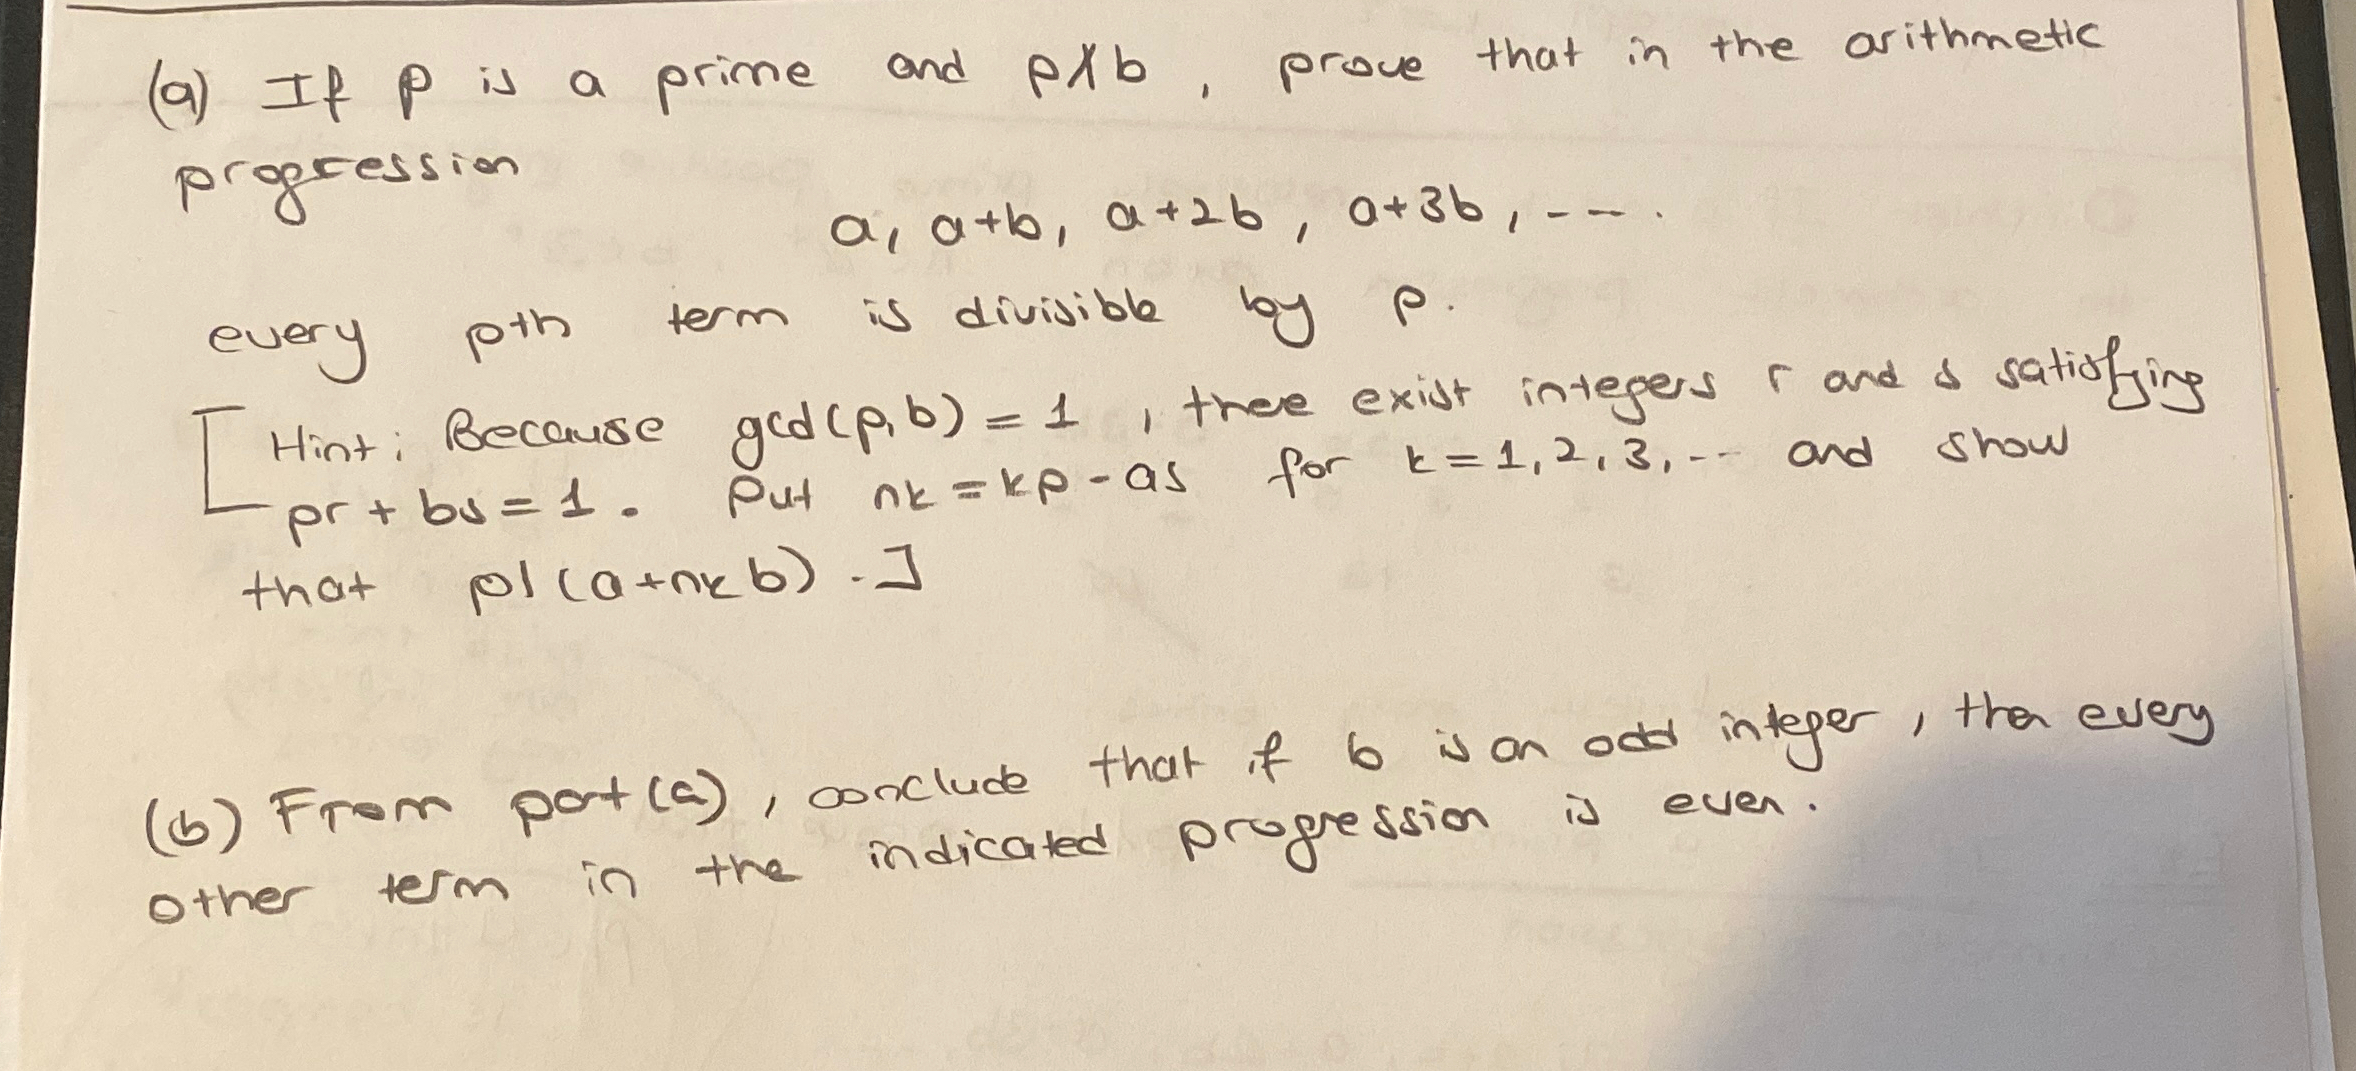 (a) If p is a prime and p∤b, prove that in the arithmetic
progression
a, a+b, a+2b, a+3b, ---.
every pth term is divisible by p.
[Hint: Because gcd(p,b) = 1, thee exist integers r and s satisfying
pr + bs = 1. Put nk = kp - as for k = 1, 2, 3, -- and show
that p|(a+nkb).]
(b) From part (a), conclude that if b is an odd integer, then every
other term in the indicated progression is even.